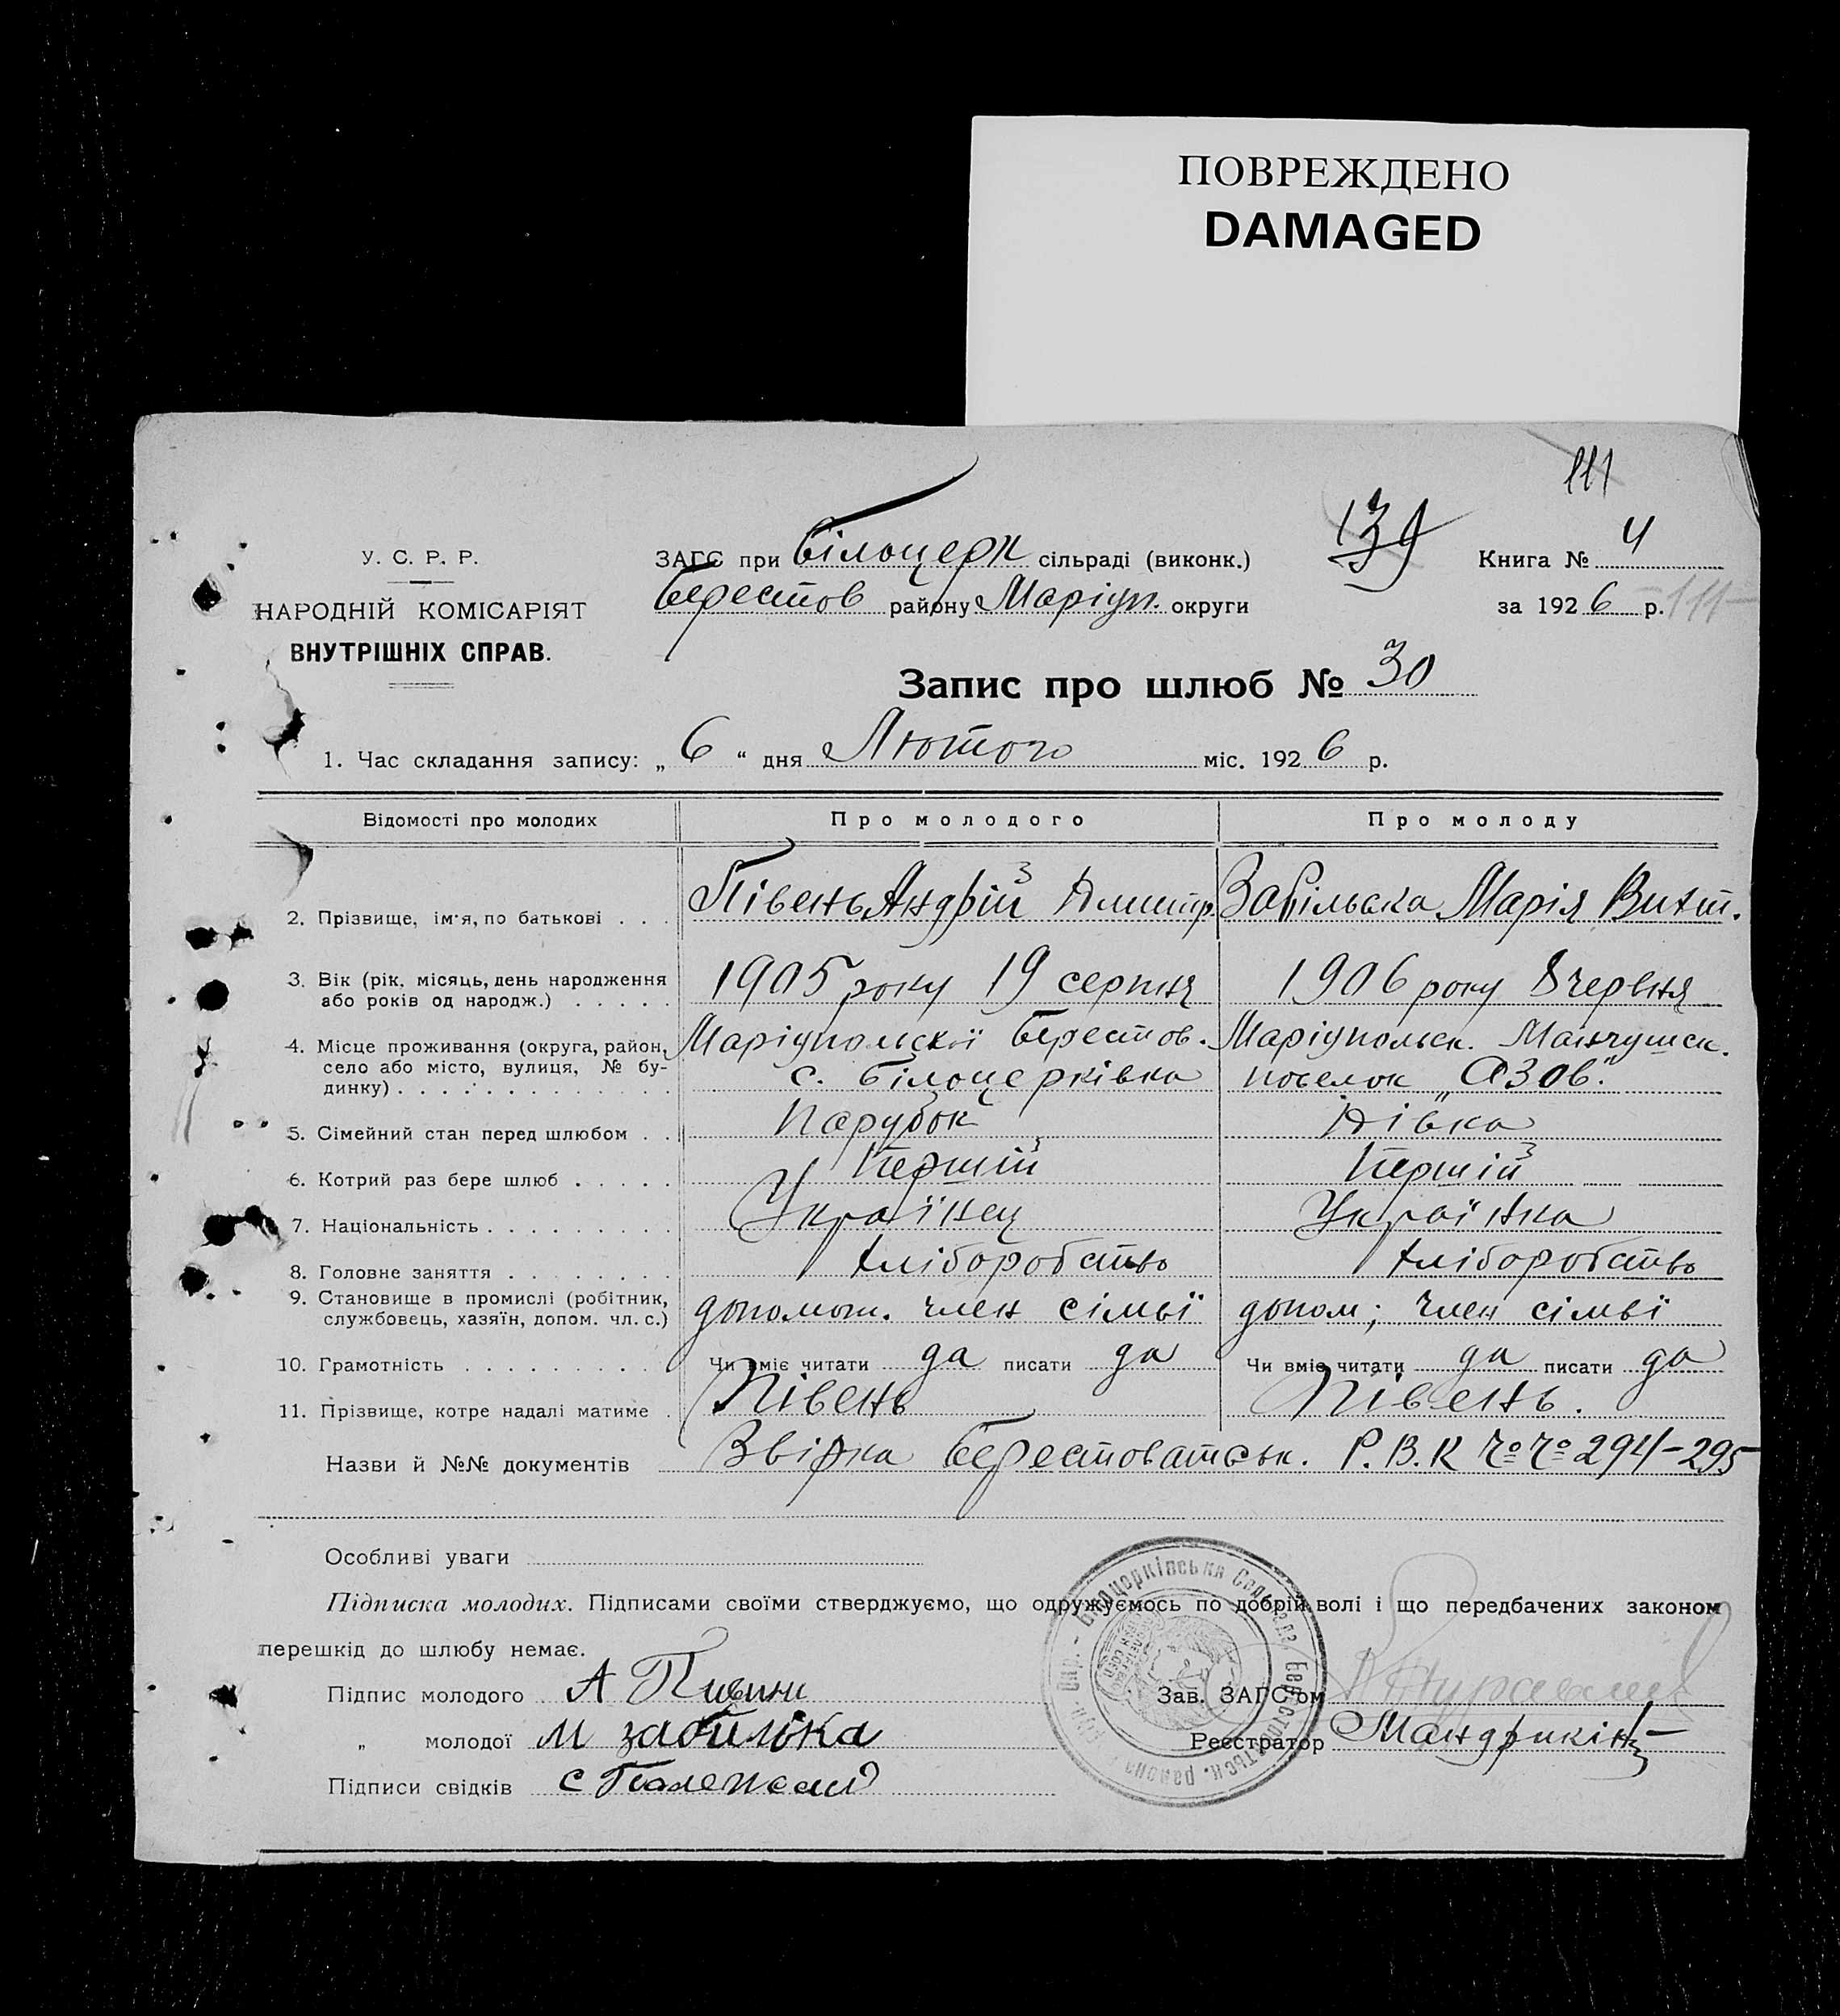 ПОВРЕЖДЕНО
DAMAGED
111
У. С. Р. Р.
НАРОДНІЙ КОМІСАРІЯТ
ВНУТРІШНІХ СПРАВ.
ЗАГС при Білоцерк сільраді (виконк.)
Берестов району Маріуп. округи
139
Книга № 4
за 1926 р. 111
Запис про шлюб № 30
1. Час складання запису: „ 6 “ дня Лютого міс. 1926 р.
Відомості про молодих Про молодого Про молоду
2. Прізвище, ім'я, по батькові . . . Півень Андрій Дмитр. Забільська Марія
3. Вік (рік, місяць, день народження
або років од народж.) . . . . . 1905 року 19 серпня 1906 року 8 червня
4. Місце проживання (округа, район, Маріупольскої Берестов. Маріупольск. Мангушск.
село або місто, вулиця, № бу- с. Білоцерківка поселок „Азов".
динку) . . . . . . . . . . . . .
5. Сімейний стан перед шлюбом . . Парубок Дівка
6. Котрий раз бере шлюб . . . . . Першій Першій
7. Національність . . . . . . . . . Українец Українка
8. Головне заняття . . . . . . . . Хліборобство Хліборобство
9. Становище в промислі (робітник,
службовець, хазяїн, допом. чл. с.) допомож. член сімьї допом; член сімьї
10. Грамотність . . . . . . . . . . Чи вміє читати да писати да Чи вміє читати да писати да
11. Прізвище, котре надалі матиме . Півень Півень.
Назви й №№ документів Звірка Берестоватськ. Р.В.К №№ 294-295
Особливі уваги
Підписка молодих. Підписами своїми стверджуємо, що одружуємось по добрій волі і що передбачених законом
перешкід до шлюбу немає.
Підпис молодого А Пивинь
Зав. ЗАГС'ом
„ молодої М забилска
Реєстратор Мандрикін
Підписи свідків С